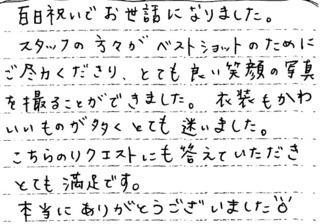 百日祝いでお世話になりました。
スタッフの方々がベストショットのために
ご尽力くださり、とても良い笑顔の写真
を撮ることができました。衣装もかわ
いいものが多くとても迷いました。
こちらのリクエストにも答えていただき
とても満足です。
本当にありがとうございました